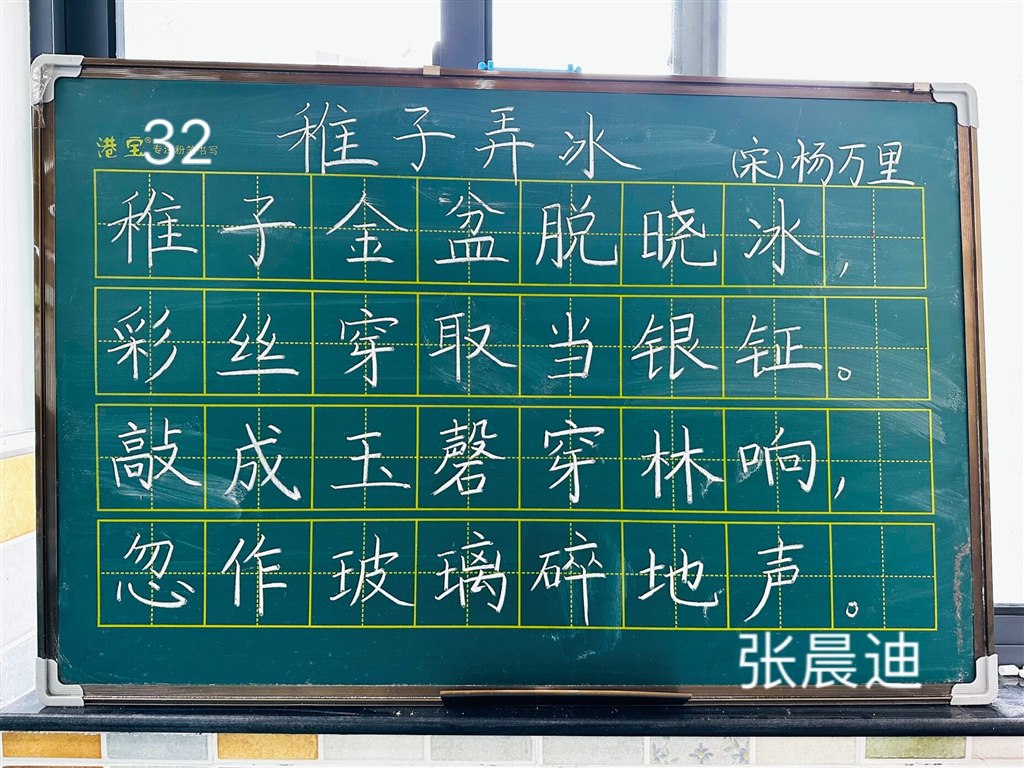 稚子弄冰
港宝® 专注粉笔书写
32
(宋)杨万里
稚子金盆脱晓冰,
彩丝穿取当银钲。
敲成玉磬穿林响,
忽作玻璃碎地声。
张晨迪